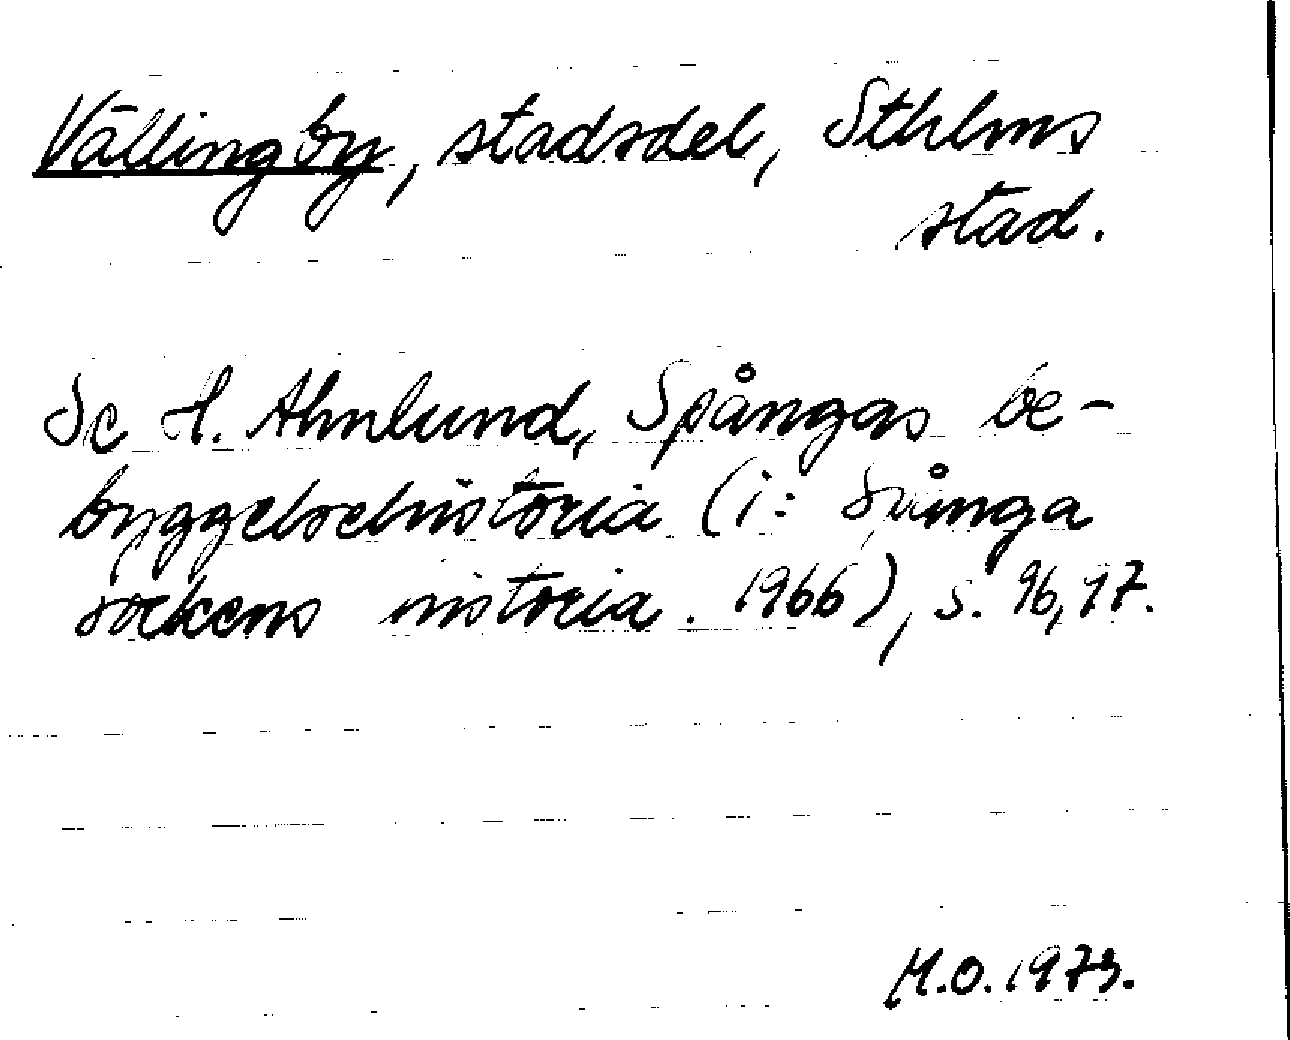 Vällingby, stadsdel, Sthlms
stad.
Se H. Ahnlund, Spångas be-
byggelsehistoria (i: Spånga
sockens historia. 1966), s. 96, 97.
M.O. 1973.